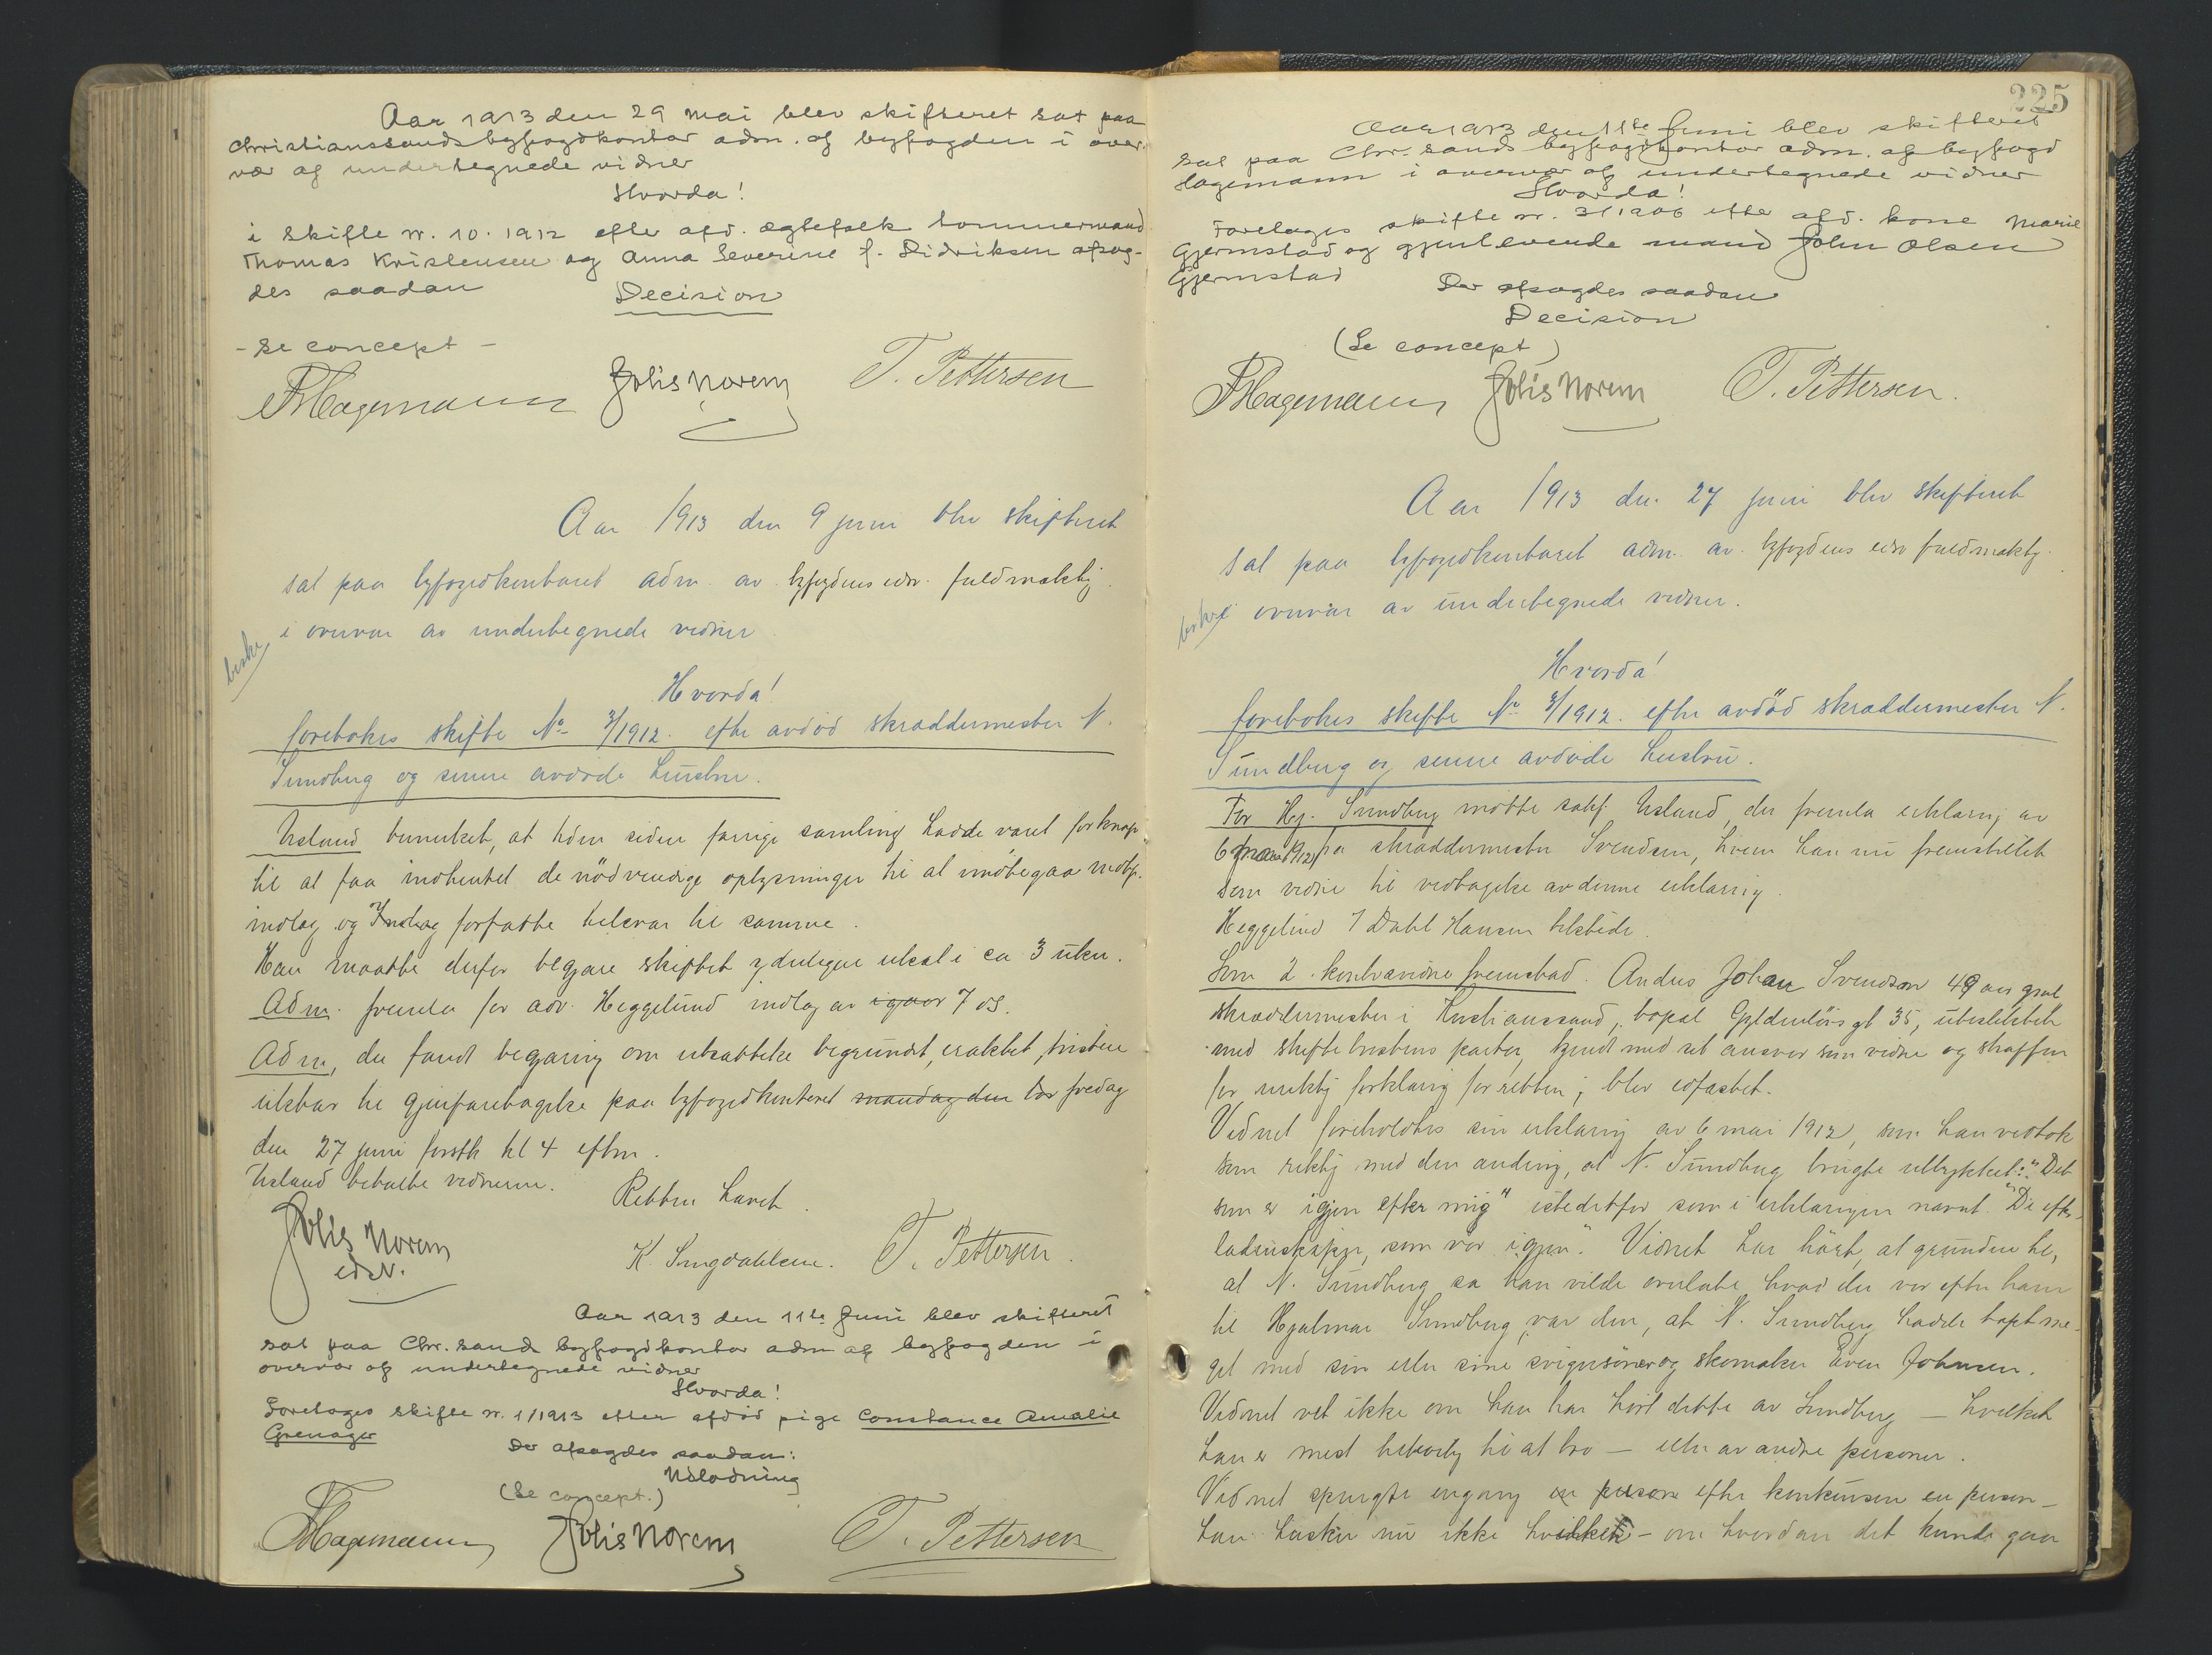 Aar 1913 den 29 mai blev skifteret sat paa
Christianssands byfogdkontor adm. af byfogden i over-
vær af undertegnede vidner
Hvorda!
i skifte nr. 10. 1912 efter afd. egtefolk tommermand
Thomas Kristensen og Anna Severine f. Didriksen afsag-
des saadan
Decision
- Se concept -
FHagemann Johs Norem T. Pettersen
Aar 1913 den 9 juni blev skifteret
sat paa byfogedkontoret adm. av byfogdens edsv. fuldmæktig
i overvær av undertegnede vidner
beskr.
Hvorda!
foretokes skifte No 3/1912. efter avdød skræddermester N.
Sundberg og senere avdøde hustru.
Usland bemerket, at tiden siden forrige samling hadde været for knap
til at faa indhentet de nødvendige oplysninger til at imøtegaa motp.
indlæg og forfatte tilsvar til samme.
Han maatte derfor begjære skiftet yderligere utsat i ca 3 uker.
Adm. fremla for adv. Heggelund indlæg av igaar 7 ds.
Adm, der fandt begjæring om utsættelse begrundet, utsattet
til gjenforetagelse paa byfogedkontoret mandag den fredag
den 27 juni førstk kl 4 eftm.
Usland betalte vidnerne.
Retten hævet.
Johs Norem
edsv.
K. T. Pettersen
Aar 1913 den 11te Juni blev skifteret
sat paa Chr.sands byfogdkontor adm af byfogden i
overvær af undertegnede vidner
Hvorda!
Foretoges skifte nr. 1/1913 efter afdød pige Constance Amalie
Grenager
Der afsagdes saadan:
Udlodning
(Se concept.)
FHagemann Johs Norem T. Pettersen
225
Aar 1913 den 11te Juni blev skifteret
sat paa Chr. sands byfogdkontor adm. af byfogd
Hagemann i overvær af undertegnede vidner
Hvorda!
Foretages skifte nr. 3/1906 efter afd. kone Marie
Gjermstad og gjenlevende mand John Olsen
Gjermstad
Der afsagdes saadan
Decision
(Se concept)
FHagemann Johs Norem T. Pettersen.
Aar 1913 den 27 juni blev skifteret
sat paa byfogedkontoret adm. av. byfogdens edsv fuldmæktig
i overvær av undertegnede vidner.
beskr
Hvorda!
foretokes skifte No 3/1912. efter avdöd skræddermester N.
Sundberg og senere avdøde hustru.
For Hj. Sundberg møtte sakf. Usland, der fremla erklæring av
6 mai 1912 fra skræddermester Svendsen, hvem han nu fremstillet
som vidne til vedtagelse av denne erklæring.
Heggelund v/ Dahl Hansen tilstede.
Som 2. kontravidne fremstod. Andres Johan Svendsen 49 aar gml
skræddermester i Kristianssand, bopæl Gyldenløvs gt 35, ubeslektet
med skifterettens parter, kjendt med sit ansvar som vidne og straffen
for uriktig forklaring for retten; blev edfæstet.
Vidnet foreholdtes sin erklæring av 6 mai 1912, som han vedtok
som riktig med den ændring, at N. Sundberg brugte uttrykket: "Det
som er igjen efter mig" istedetfor som i erklæringen nævnt. "De efter-
ladenskaper, som var igjen". Vidnet har hört, at grunden til,
at N. Sundberg sa han vilde overlate hvad der var efter ham
til Hjalmar Sundberg var den, at N. Sundberg hadde tapt me-
get med sin eller sine svigersönner og skomaker Even Johnsen.
Vidnet vet ikke om han har hört dette av Sundberg — hvilket
han er mest tilböielig til at tro — eller av andre personer.
Vidnet spurgte engang en person efter konkursen en person –
han husker nu ikke hvilken – om hvordan det kunde gaa